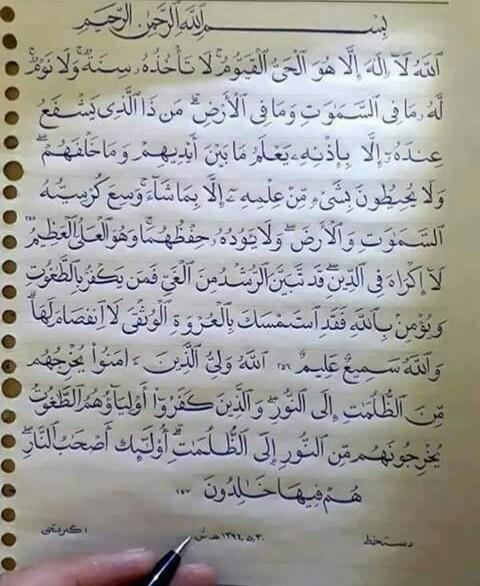 بِسْمِ ٱللَّهِ ٱلرَّحْمَٰنِ ٱلرَّحِيمِ
ٱللَّهُ لَآ إِلَٰهَ إِلَّا هُوَ ٱلْحَىُّ ٱلْقَيُّومُ ۚ لَا تَأْخُذُهُۥ سِنَةٌ وَلَا نَوْمٌ ۚ
لَّهُۥ مَا فِى ٱلسَّمَٰوَٰتِ وَمَا فِى ٱلْأَرْضِ ۗ مَن ذَا ٱلَّذِى يَشْفَعُ
عِندَهُۥٓ إِلَّا بِإِذْنِهِۦ ۚ يَعْلَمُ مَا بَيْنَ أَيْدِيهِمْ وَمَا خَلْفَهُمْ ۖ
وَلَا يُحِيطُونَ بِشَىْءٍ مِّنْ عِلْمِهِۦٓ إِلَّا بِمَا شَآءَ ۚ وَسِعَ كُرْسِيُّهُ
ٱلسَّمَٰوَٰتِ وَٱلْأَرْضَ ۖ وَلَا يَـُٔودُهُۥ حِفْظُهُمَا ۚ وَهُوَ ٱلْعَلِىُّ ٱلْعَظِيمُ
لَآ إِكْرَاهَ فِى ٱلدِّينِ ۖ قَد تَّبَيَّنَ ٱلرُّشْدُ مِنَ ٱلْغَىِّ ۚ فَمَن يَكْفُرْ بِٱلطَّٰغُوتِ
وَيُؤْمِنۢ بِٱللَّهِ فَقَدِ ٱسْتَمْسَكَ بِٱلْعُرْوَةِ ٱلْوُثْقَىٰ لَا ٱنفِصَامَ لَهَا ۗ
وَٱللَّهُ سَمِيعٌ عَلِيمٌ ٢٥٦ ٱللَّهُ وَلِىُّ ٱلَّذِينَ ءَامَنُوا۟ يُخْرِجُهُم
مِّنَ ٱلظُّلُمَٰتِ إِلَى ٱلنُّورِ ۖ وَٱلَّذِينَ كَفَرُوٓا۟ أَوْلِيَآؤُهُمُ ٱلطَّٰغُوتُ
يُخْرِجُونَهُم مِّنَ ٱلنُّورِ إِلَى ٱلظُّلُمَٰتِ ۗ أُو۟لَٰٓئِكَ أَصْحَٰبُ ٱلنَّارِ ۖ
هُمْ فِيهَا خَٰلِدُونَ ٢٥٧
دستخط ١٣٩٦.٥.٣٠ هـ ش